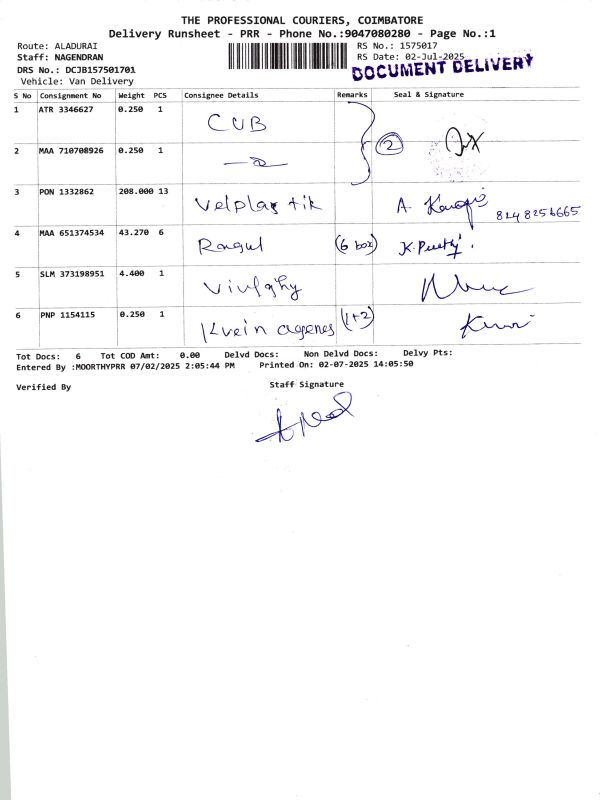 THE PROFESSIONAL COURIERS, COIMBATORE
Delivery Runsheet - PRR - Phone No.:9047080280 - Page No.:1
Route: ALADURAI
RS No.: 1575017
Staff: NAGENDRAN
RS Date: 02-Jul-2025
DRS No.: DCJB157501701
DOCUMENT DELIVERY
Vehicle: Van Delivery
S No Consignment No Weight PCS Consignee Details Remarks Seal & Signature
1 ATR 3346627 0.250 1 CUB
2 MAA 710708926 0.250 1 2
3 PON 1332862 208.000 13 Velplastik A. 8248256665
4 MAA 651374534 43.270 6 Ragul (6 box) K.
5 SLM 373198951 4.400 1
6 PNP 1154115 0.250 1 (1+2)
Tot Docs: 6 Tot COD Amt: 0.00 Delvd Docs: Non Delvd Docs: Delvy Pts:
Entered By :MOORTHYPRR 07/02/2025 2:05:44 PM Printed On: 02-07-2025 14:05:50
Verified By Staff Signature